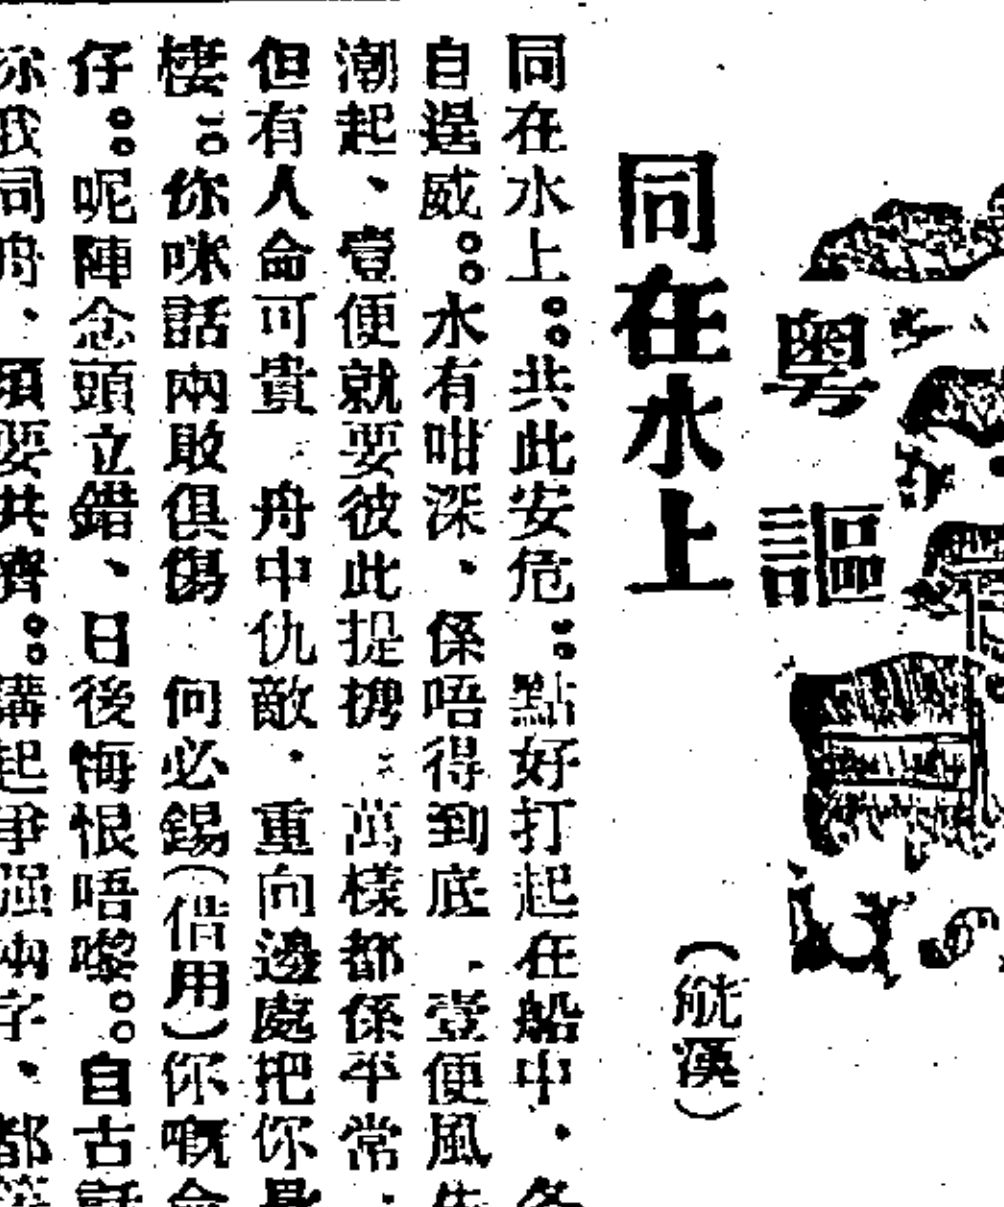 粤謳
同在水上
(䚇漢)
同在水上。。共此安危。。點好打起在船中・各
自逞威。。水有咁深、係唔得到底・壹便風生
潮起、壹便就要彼此提携・萬樣都係平常・
但有人命可貴・舟中仇敵・重向邊處把你
棲。。你咪話兩敗俱傷 何必錫(借用)你嘅命
仔。。呢陣念頭立錯、日後悔恨唔嚟。。自古話
你我同舟、須要共濟。。講起爭强兩字、都